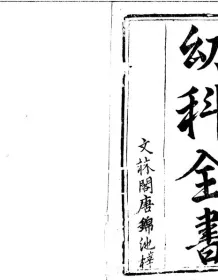 幼科全書
文林閣唐錦池梓